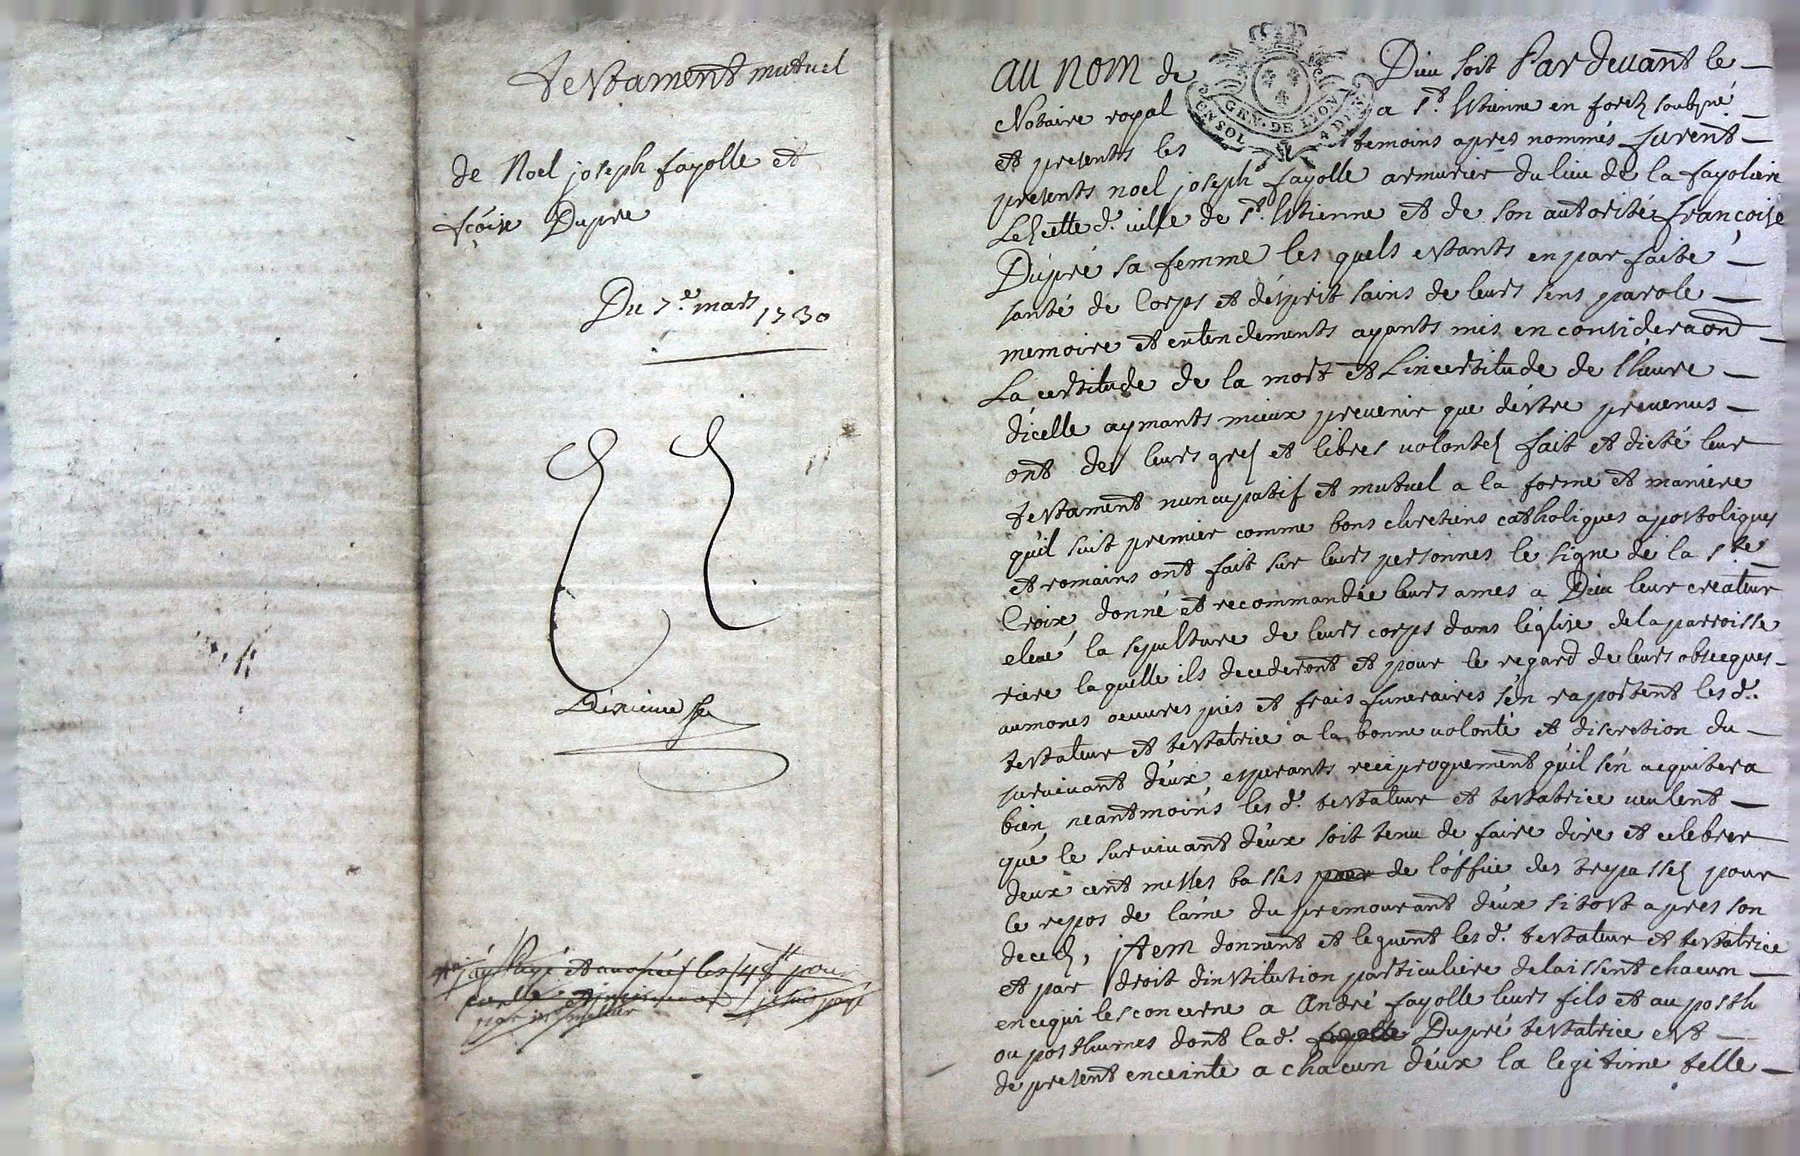 testament mutuel
de Noel joseph fayolle et
fcóise Dupré
Du 7e. mars 1730
au nom de Dieu soit Par devant le
GEN. DE LYON
SOL 4 D
Notaire royal a St. Estienne en forez soubzné
et presents les temoins apres nommés furent
presents noel joseph fayolle armurier du lieu de la fayoliere
lez cette d. ville de St. Estienne et de son autorité françoise
Dupré sa femme les quels estants en parfaite
santé de Corps et désprit sains de leurs sens parole
memoire et entendements ayants mis en considéraond
La certitude de la mort et Lincertitude de l'heure
dicelle aymants mieux prevenir que déstre prevenus
ont de leurs grez et libres volontez fait et dicté leur
testament nuncupatif et mutuel a la forme et maniere
qúil suit premier comme bons chretiens catholiques apostoliques
et romains ont fait sur leurs personnes le signe de la ste
Croix, donné et recommandée leurs ames a Dieu leur createur
eleué la sepulture de leurs corps dans léglise de la parroisse
riere laquelle ils decederont et pour le regard de leurs obseques
aumones oeuvres pies et frais funeraires sén raportent les d.
testateur et testatrice à la bonne volonté et discretion du
survivant déux esperants reciproquement qúil sén acquitera
bien, neantmoins les d. testateur et testatrice veulent
que le survivant déux soit tenu de faire dire et celebrer
deux cent messes basses pour de lóffice des trepassez pour
le repos de láme du premourant déux sitost apres son
decedz, jtem donnent et leguent les d. testateur et testatrice
et par droit dinstitution particuliere delaissent chacun
en ce qui les concerne a André fayolle leurs fils et au posth
ou posthumes dont la d. fayolle Dupré testatrice est
de present enceinte a chacun déux la legitime telle